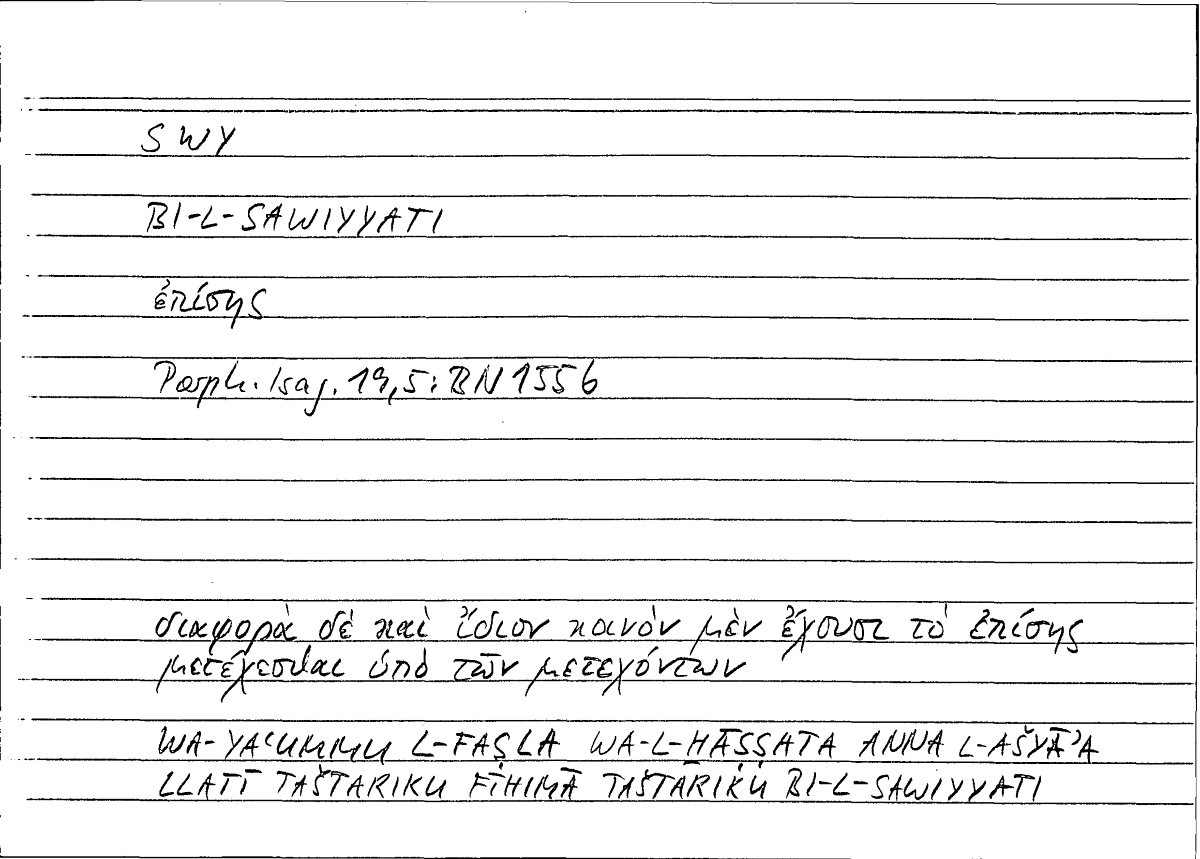 SWY
BI-L-SAWIYYATI
ἐπίσης
Porph. Isag. 19,5: BN 1556
διαφορὰ δὲ καὶ ἴδιον κοινὸν μὲν ἔχουσι τὸ ἐπίσης
μετέχεσθαι ὑπὸ τῶν μετεχόντων
WA-YAʿUMMU L-FAṢLA WA-L-HĀṢṢATA ANNA L-AŠYĀʾA
LLATĪ TAŠTARIKU FĪHIMĀ TAŠTARIKU BI-L-SAWIYYATI